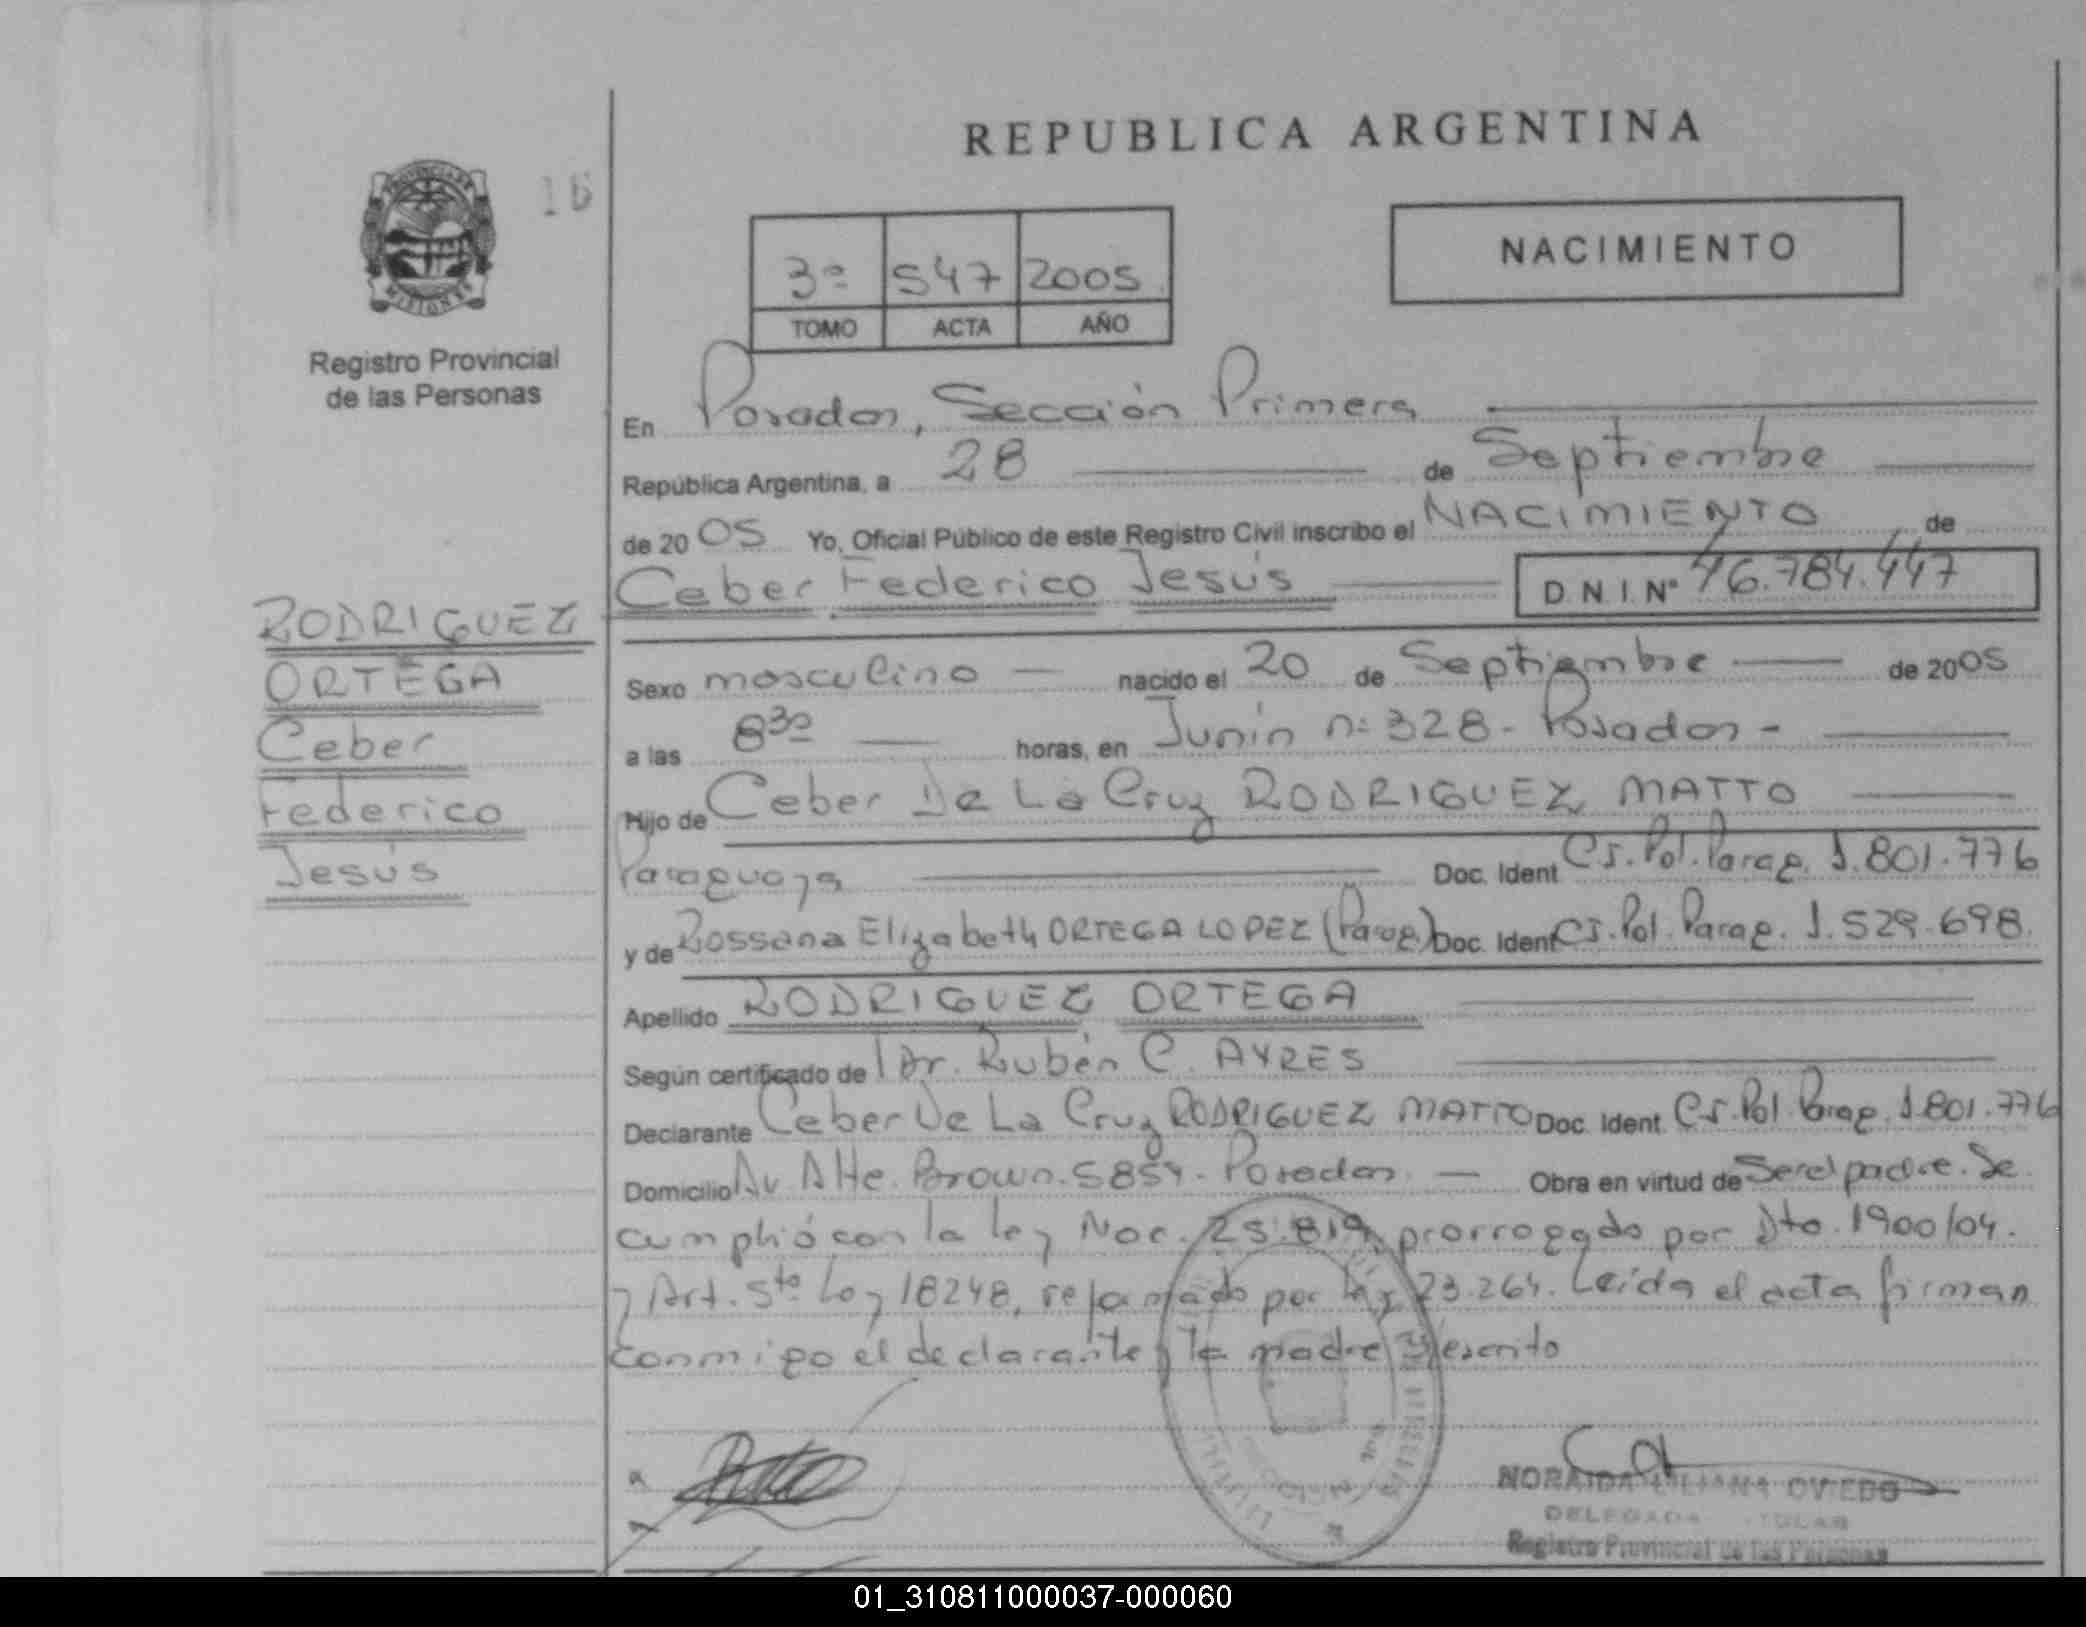 REPUBLICA ARGENTINA
PROVINCIA DE
MISIONES
16
Registro Provincial
de las Personas
3º 547 2005
TOMO ACTA AÑO
NACIMIENTO
En Posadas, Sección Primera
República Argentina, a 28 de Septiembre
de 2005 Yo, Oficial Público de este Registro Civil inscribo el NACIMIENTO de
Ceber Federico Jesús D.N.I. Nº 46.784.447
RODRIGUEZ
ORTEGA
Ceber
Federico
Jesús
Sexo masculino nacido el 20 de Septiembre de 2005
a las 8 30 horas, en Junín nº 328 - Posadas -
Hijo de Ceber De La Cruz RODRIGUEZ MATTO
Paraguaya Doc. Ident CI. Pol. Parag. 1.801.776
y de Rossana Elizabeth ORTEGA LOPEZ (Parag.) Doc. Ident CI. Pol. Parag. 1.529.698.
Apellido RODRIGUEZ ORTEGA
Según certificado de Dr. Rubén C. AYRES
Declarante Ceber De La Cruz RODRIGUEZ MATTO Doc. Ident. CI. Pol. Parag. 1.801.776
Domicilio Av. Alte. Brown. 5854. Posadas. Obra en virtud de Ser el padre. Se
cumplió con la ley Nac. 25.819, prorrogado por Dto. 1900/04.
y Art. 5to Ley 18248, reformado por ley 23.264. Leída el acta firman
conmigo el declarante y la madre
NORAIDA LILIANA OVIEDO
DELEGADA TITULAR
Registro Provincial de las Personas
01_310811000037-000060